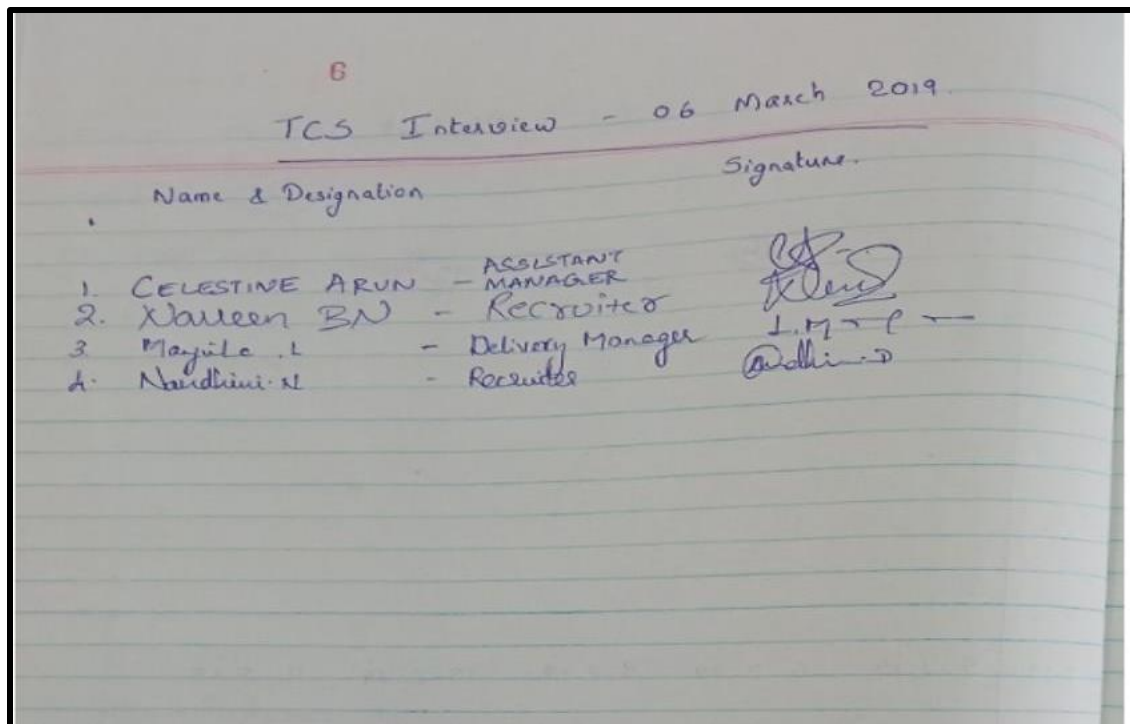 6
TCS Interview - 06 March 2019.
Name & Designation Signature.
1. CELESTINE ARUN - ASSISTANT MANAGER
2. Naveen BN - Recruiter
3 - Delivery Manager
4. Nandhini.N - Recruiter